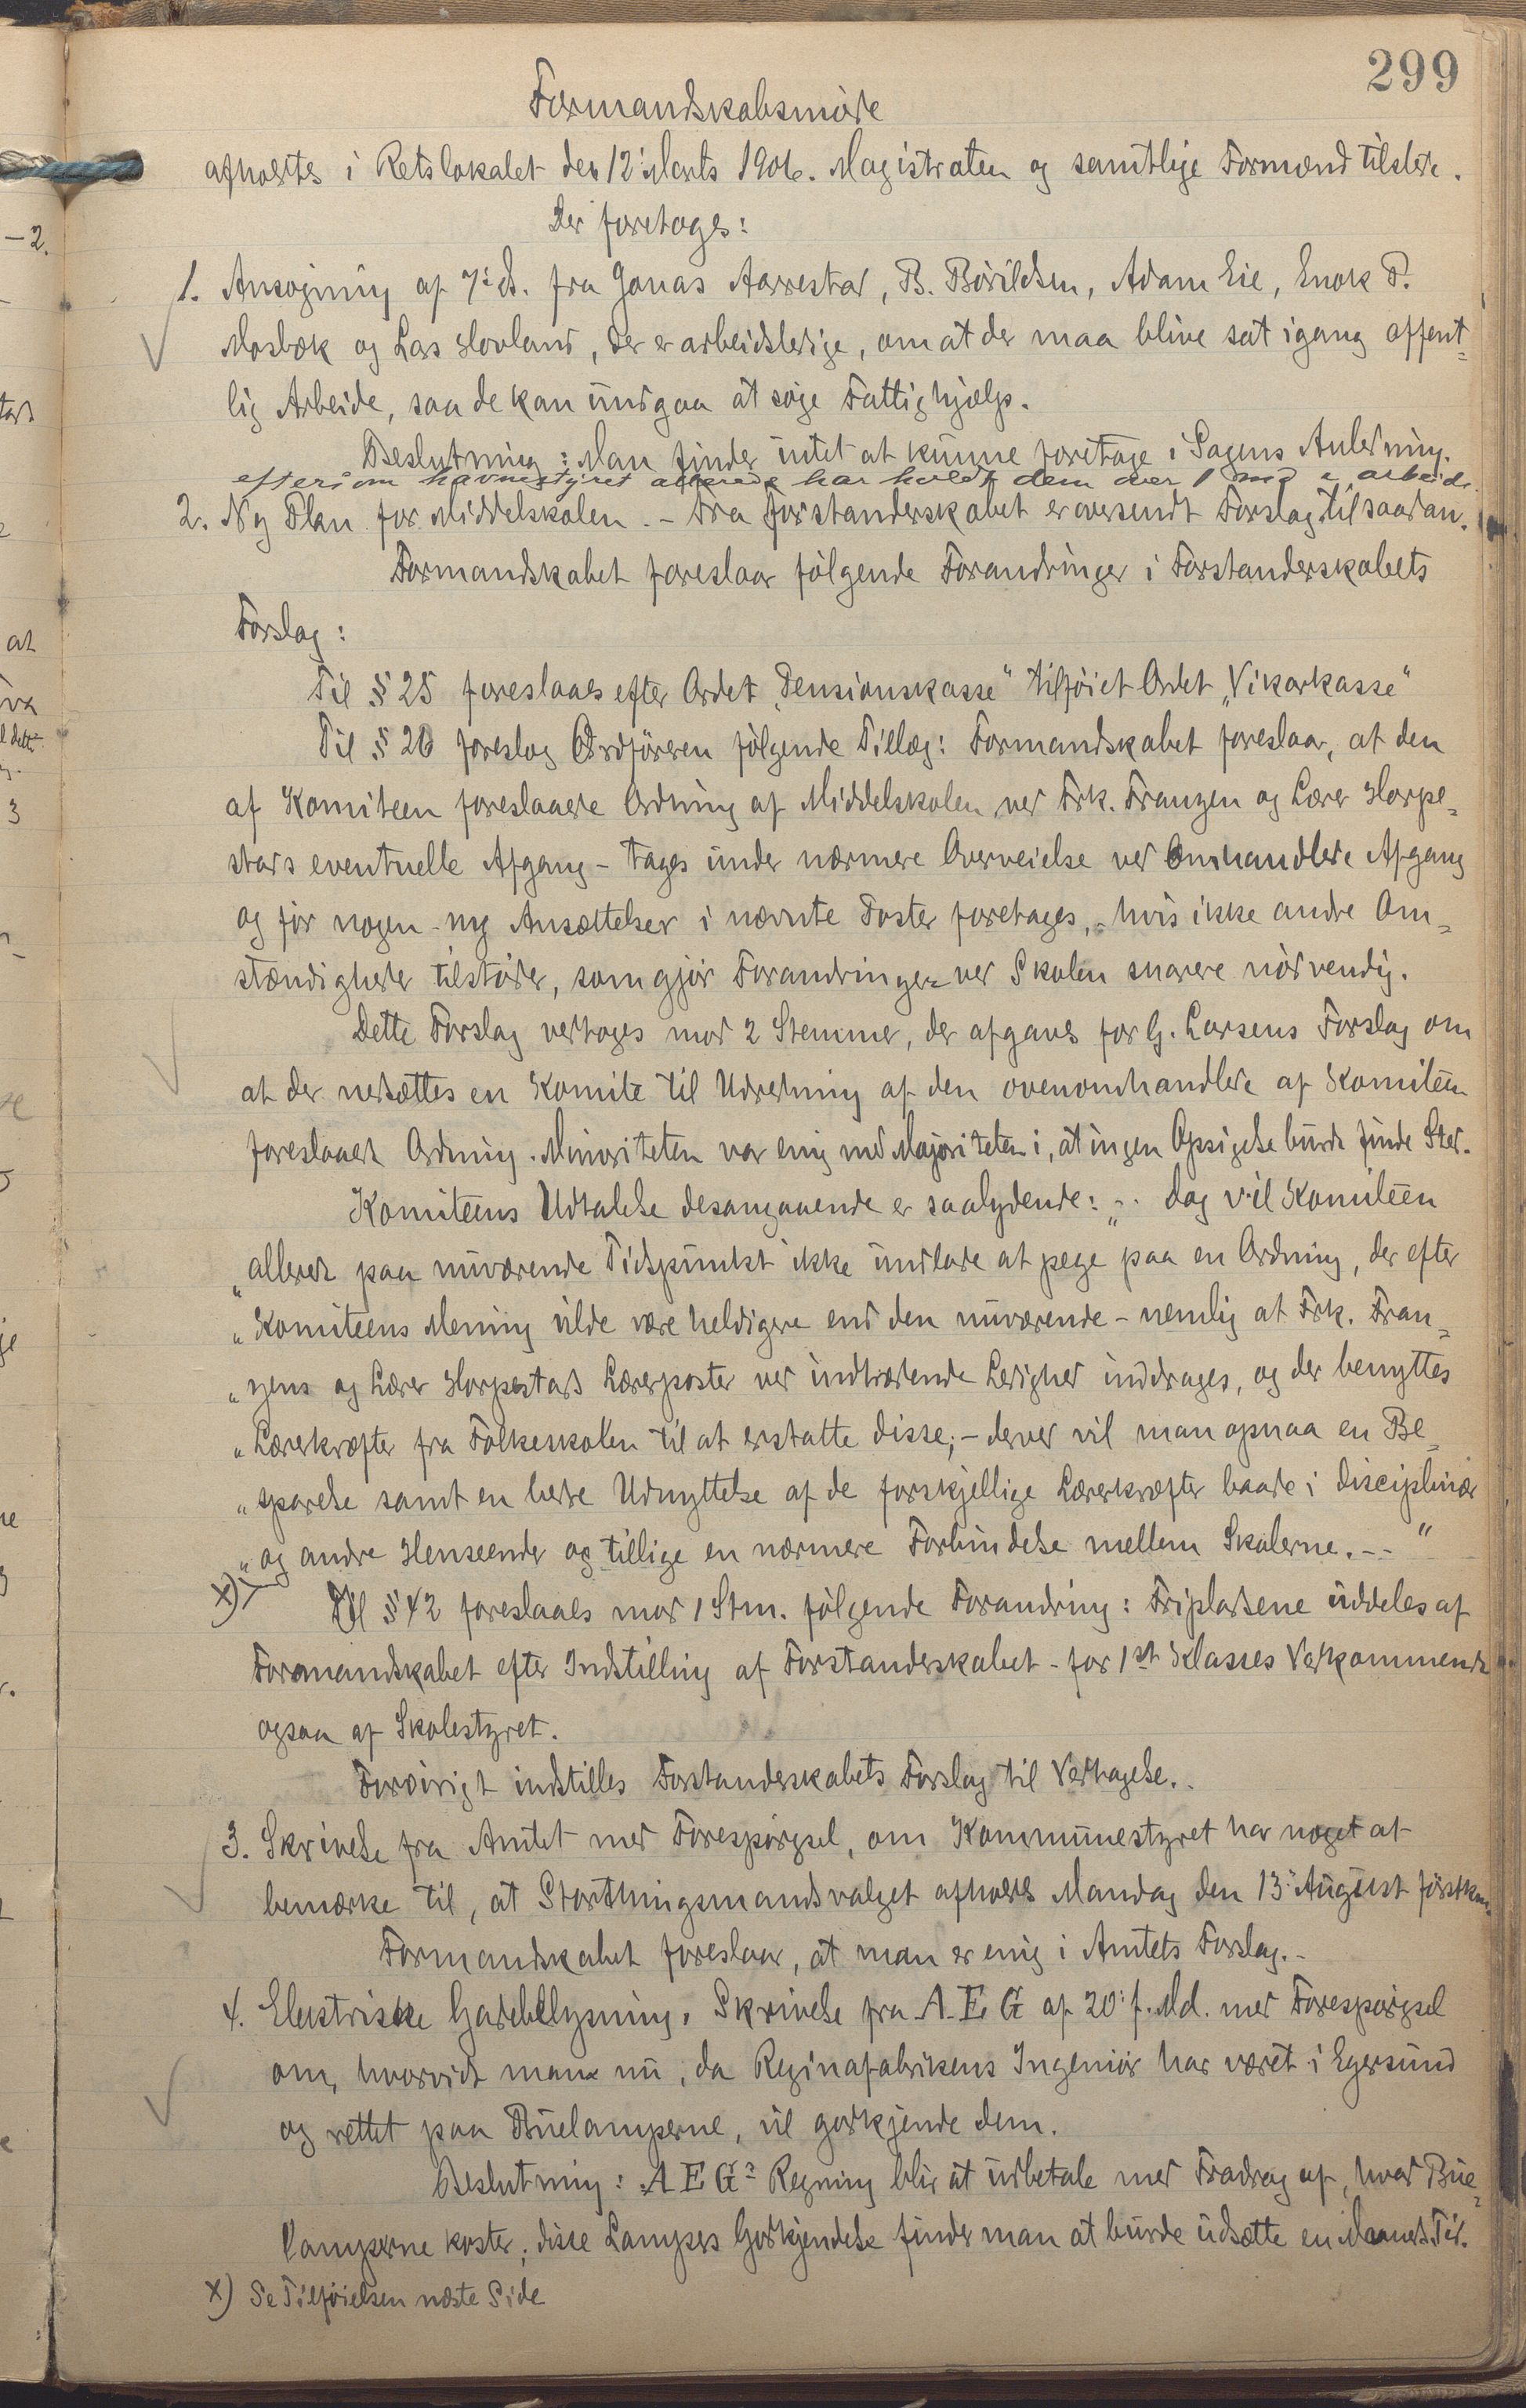 299
Formandskabsmøde
afholdtes i Retslokalet den 12' Marts 1906. Magistraten og samtlige Formænd tilstede.
Der foretoges:
1. Ansøgning af 7' ds. fra Jonas Aarrestad, B. Bøvildsen, Adam Eie, Enok P.
Mosbæk og Lars Hovland, der er arbeidsledige, om at der maa blive sat igang offent-
lig Arbeide, saa de kan undgaa at søge Fattighjælp.
Beslutning: Man finder intet at kunne foretage i Sagens Anledning.
eftersom havnestyret allerede har holdt dem over 1 md i arbeide.
2. Ny Plan for Middelskolen. - Fra Forstanderskabet er oversendt Forslag til saadan.
Formandskabet foreslaar følgende Forandringer i Forstanderskabets
Forslag:
Til § 25 foreslaaes efter Ordet „Pensionskasse" tilføiet Ordet „Vikarkasse"
Til § 26 foreslog Ordføreren følgende Tillæg: Formandskabet foreslaar, at den
af Komiteen foreslaaede Ordning af Middelskolen ved Frk. Franzen og Lærer Horpe-
stads eventuelle Afgang - tages under nærmere Overveielse ved omhandlede Afgang
og før nogen ny Ansættelser i nævnte Poster foretages, - hvis ikke andre Om-
stændigheder tilstøder, som gjør Forandringer ved Skolen snarere nødvendig.
Dette Forslag vedtoges mod 2 Stemmer, der afgaves for G. Larsens Forslag om
at der nedsættes en Komite til Udredning af den ovenomhandlede af Komiteen
foreslaaede Ordning. Minoriteten var enig med Majoriteten i, at ingen Opsigelse burde finde Sted.
Komiteens Udtalelse desangaaende er saalydende: „-. dog vil Komiteen
„allerede paa nuværende Tidspunkt ikke undlade at pege paa en Ordning, der efter
„Komiteens Mening vilde være heldigere end den nuværende - nemlig at Frk. Fran-
„zens og Lærer Horpestads Lærerposter ved indtrædende Ledighed inddrages, og der benyttes
„Lærerkræfter fra Folkeskolen til at erstatte disse; - derved vil man opnaa en Be-
„sparelse samt en bedre Udnyttelse af de forskjellige Lærerkræfter baade i disciplinær
„og andre Henseender og tillige en nærmere Forbindelse mellem Skolerne. --"
x) Til § 42 foreslaaes mod 1 Stm. følgende Forandring: Fripladsene uddeles af
Formandskabet efter Indstilling af Forstanderskabet - for 1ste Klasses Vedkommende
ogsaa af Skolestyret.
Forøvrigt indstilles Forstanderskabets Forslag til Vedtagelse.
3. Skrivelse fra Amtet med Forespørgsel, om Kommunestyret har noget at
bemærke til, at Storthingsmandsvalget afholdes Mandag den 13' August førstkom.
Formandskabet foreslaar, at man er enig i Amtets Forslag. -
4. Elektriske Gadebelysning. Skrivelse fra A.E.G af 20' f. Md. med Forespørgsel
om, hvorvidt man nu, da Reginafabrikens Ingeniør har været i Egersund
og rettet paa Buelamperne, vil godkjende dem.
Beslutning: A E G's Regning blir at udbetale med Fradrag af, hvad Bue-
lamperne koster; disse Lampers Godkjendelse finder man at burde udsætte en Maaneds Tid.
x) Se Tilføielsen næste Side